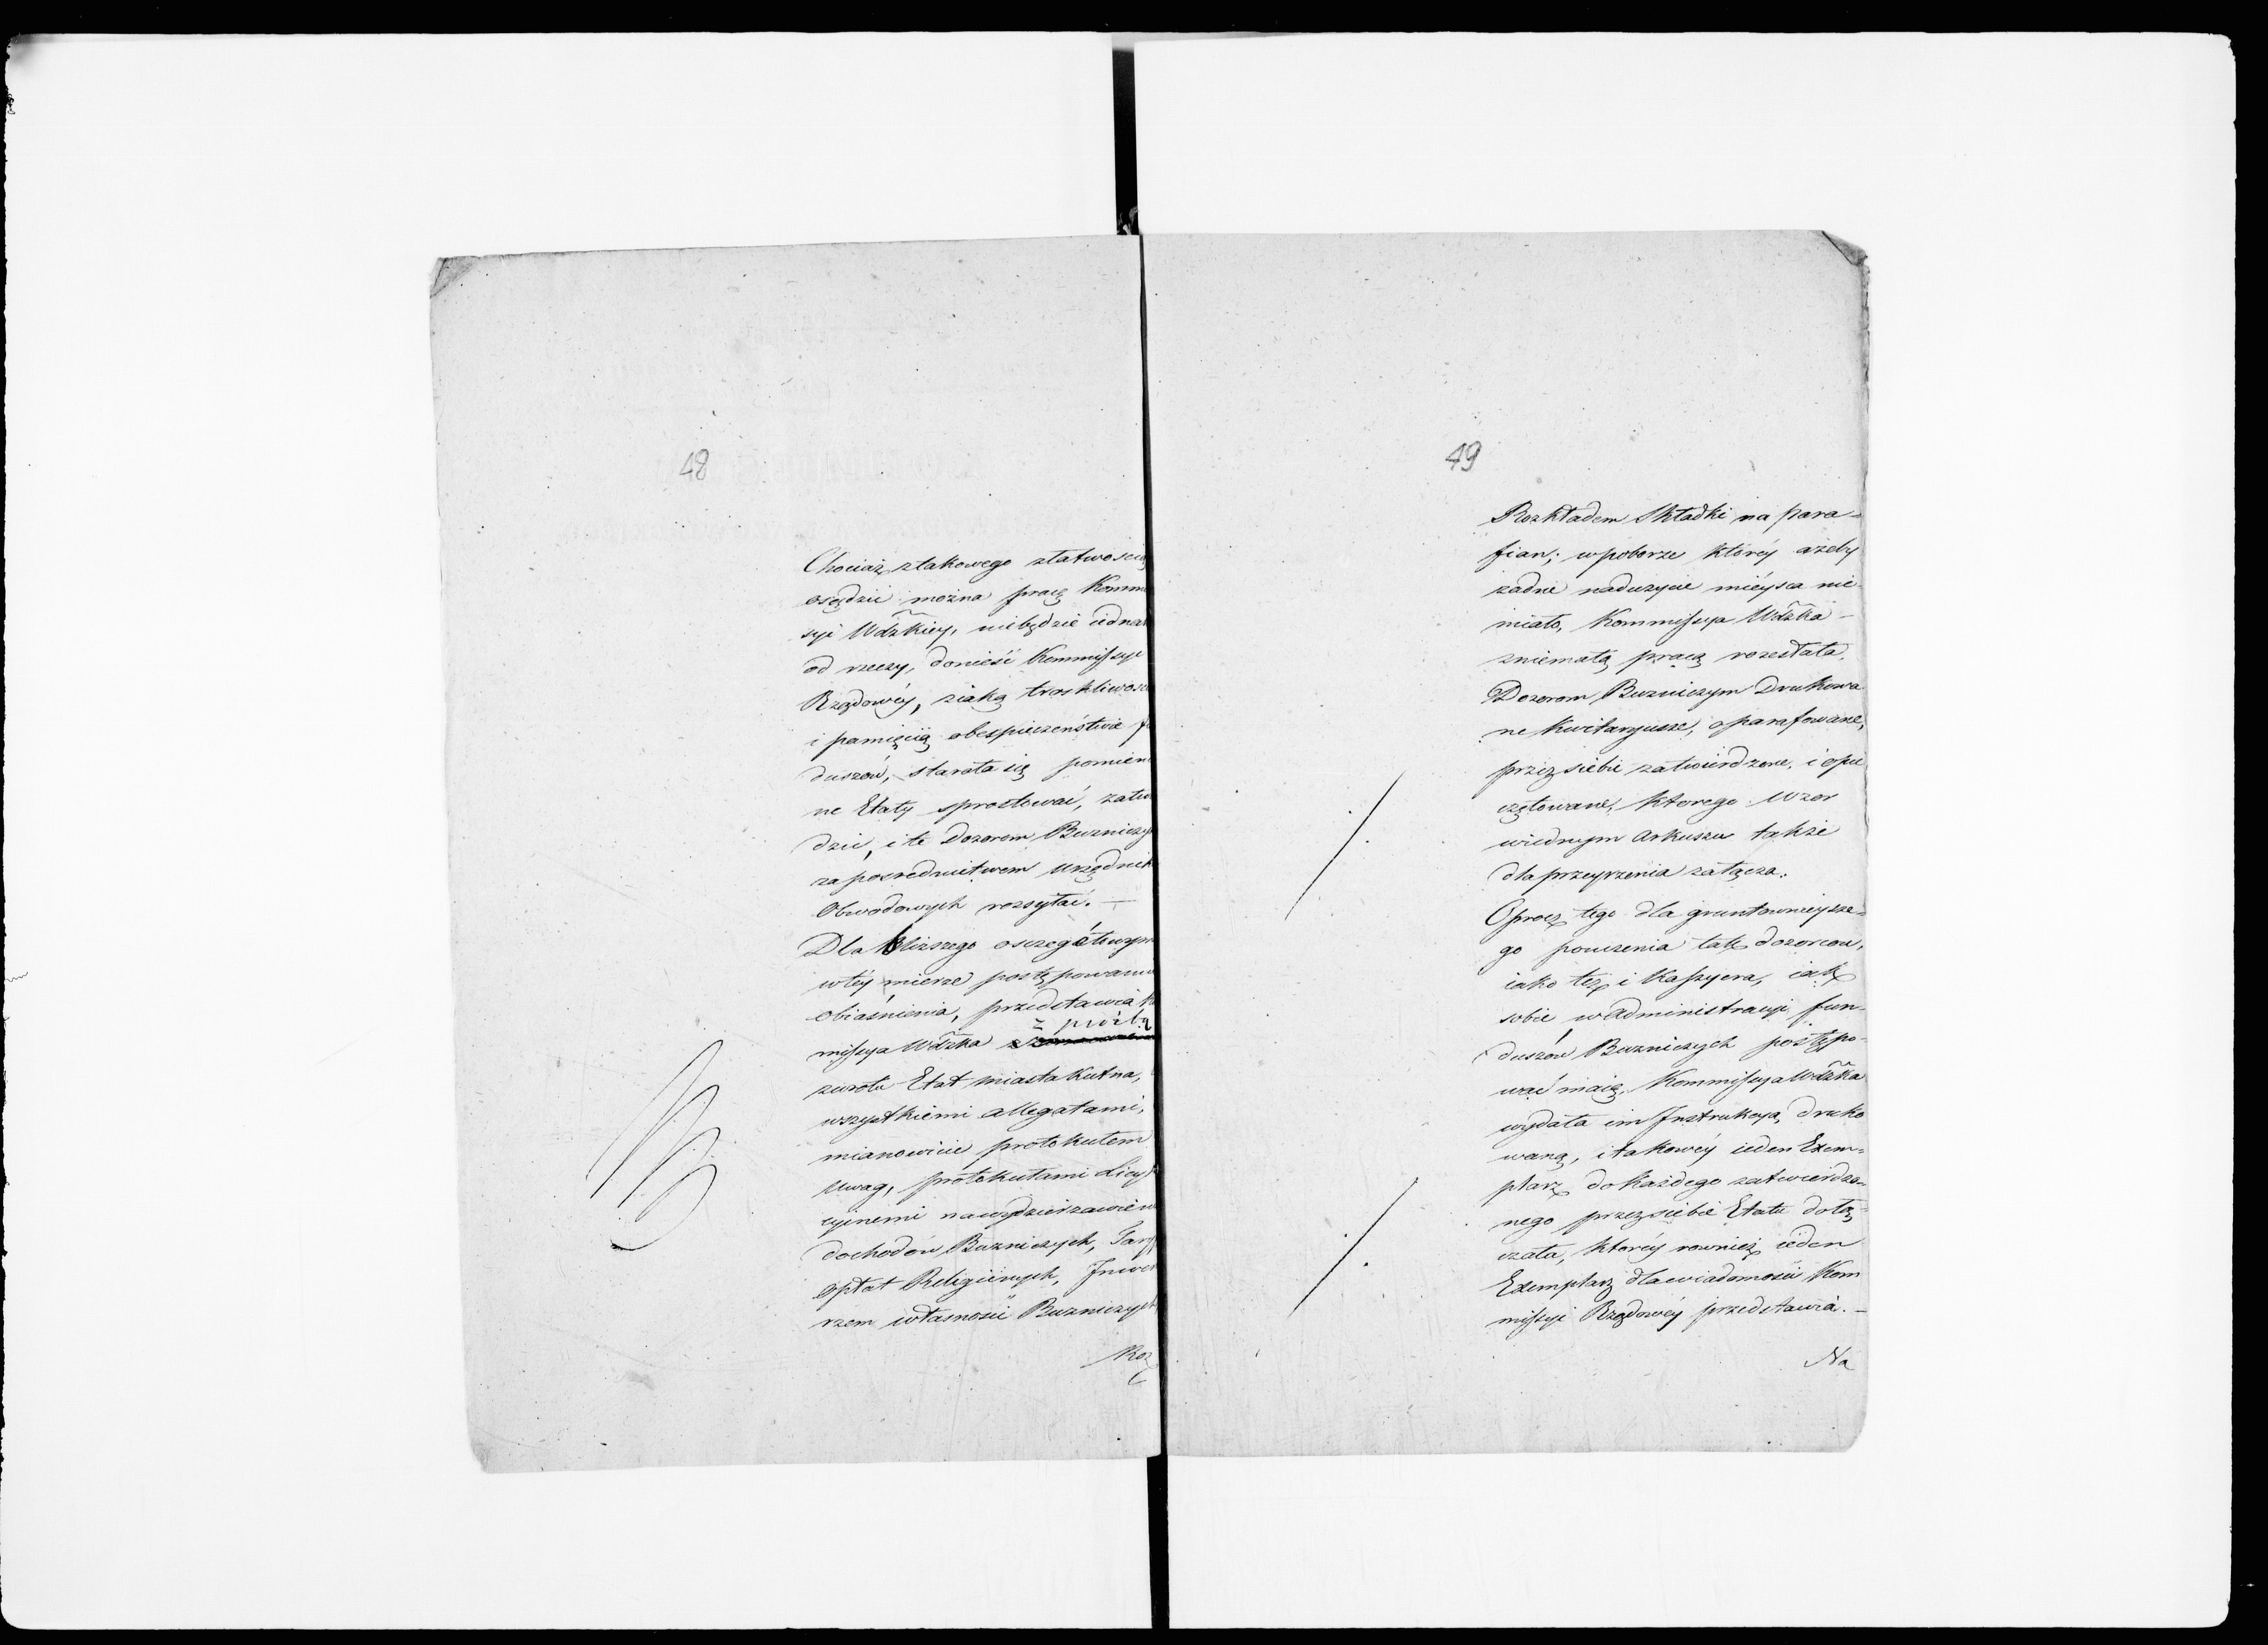 48
Chociaż ztakowego złatwoscią
osądzić można pracę Komm
syi Wdzkiey, niebędzie iedna
od rzeczy, donieść Kommissyi
Rządowéy, ziaką troskliwos
i pamięcią obespieczeństwa fu
duszów, starała się pomien
ne Etaty sprostować, zatw
dzić, i te Dozorom Bużniczy
za posrednictwem Urzędnik
Obwodowych rozsyłać. —
Dla Bliższego oszczegółowym
wtéy mierze postępowaniu
obiaśnienia, przedstawia K
z prośbą
missya Wdzka
zwrotu Etat miasta Kutna,
wszystkiemi allegatami,
mianowicie protokułem
Uwag, protokułami Licy
cyinemi na wydzierzawien
dochodów Bużniczych, Tary
opłat Religiinych, Inwen
rzem własności Bużniczych
Roz
49
Rozkładem Składki na para-
fian; w poborze któréy ażeby
żadne nadużycie mieysca nie
miało, Kommissya Wdzka —
zniemałą pracą rozesłała
Dozorom Bużniczym Drukowa
ne Kwitaryusze, oparafowane,
przez siebie zatwierdzone, i opie
czętowane, ktorego Wzor
w iednym Arkuszu także
dla przeyrzenia załącza.
Oprocz tego dla gruntownieysze-
go pouczenia tak dozorców,
iako też i Kassyera, iak
sobie w administracyi fun-
duszów Bużniczych postępo-
wać maią, Kommissya Wdzka
wydała im Instrukcyą, druko
waną, i takowéy ieden Exem=
plarz do każdego zatwierdzo=
nego przez siebie Etatu dołą=
czała, któréy rownież ieden
Exemplarz dla wiadomości Kom
missyi Rządowéy przedstawia. —
Na